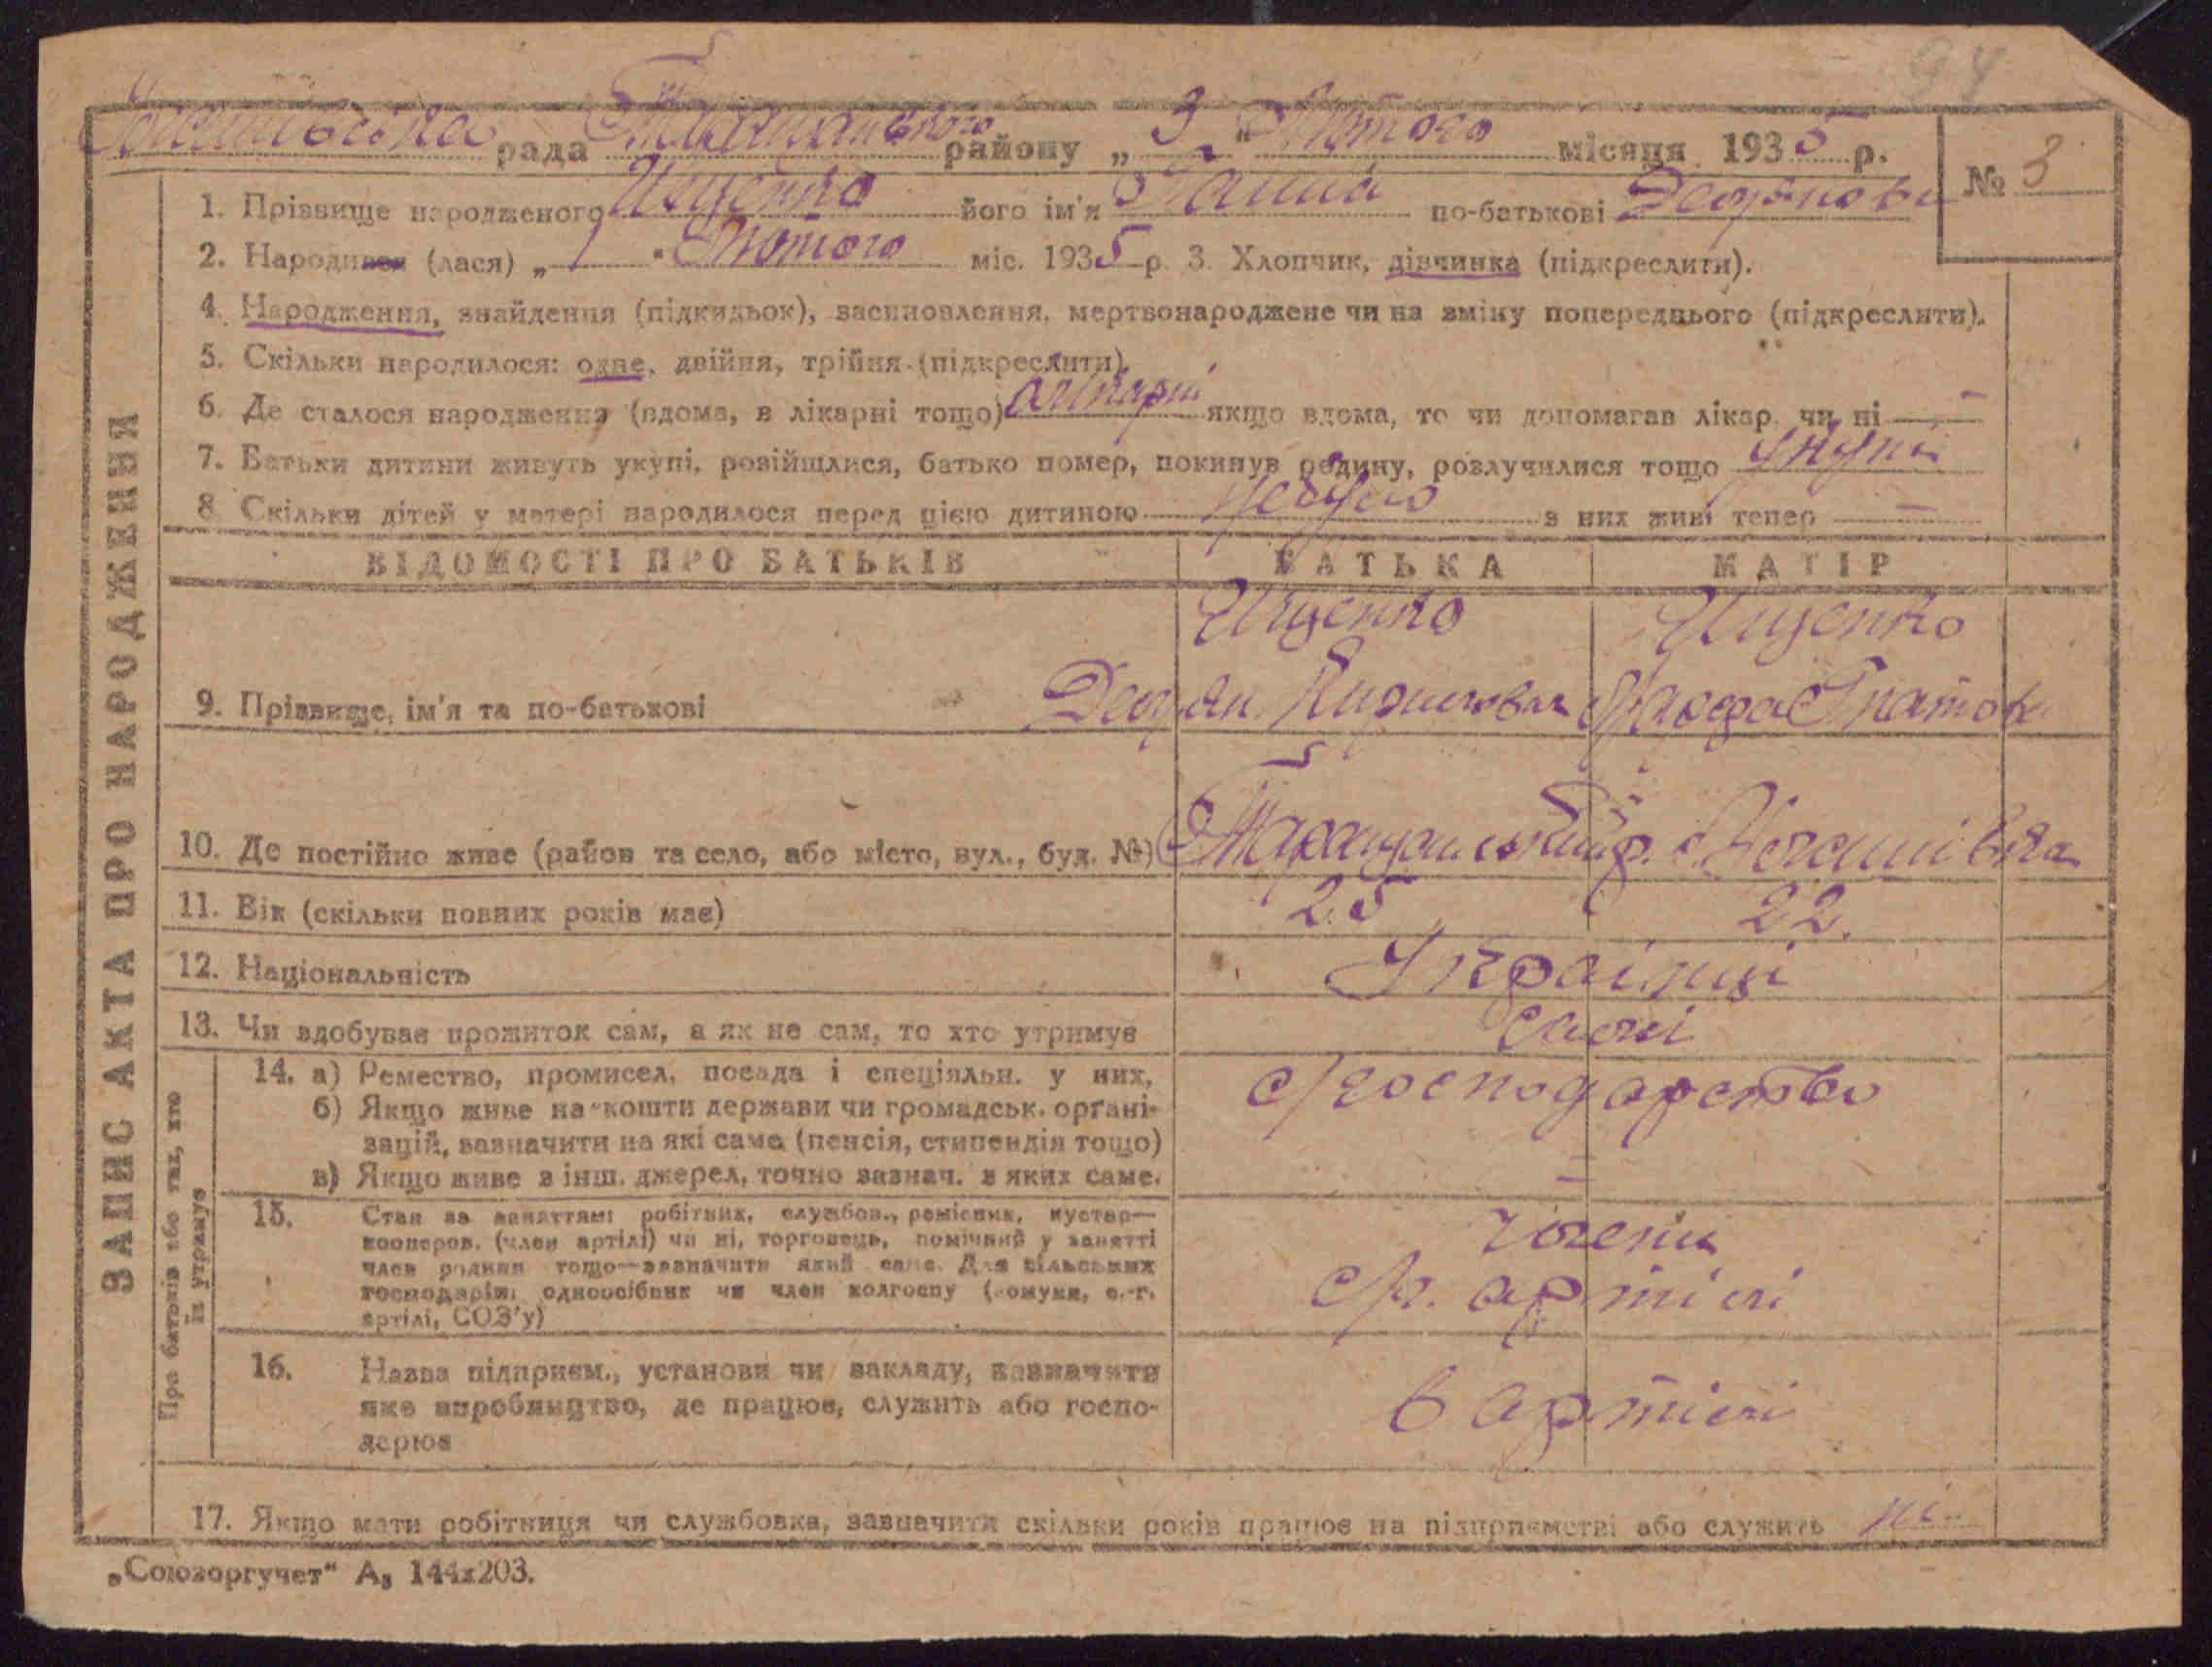 94
рада Таращанського району „ 3 " Лютого місяця 1935 р.
№ 3
1. Прізвище народженого Ищенко його ім'я Ганна по-батькові Демʼянови
2. Народився (лася) „ 1 " Лютого міс. 1935 р. 3. Хлопчик, дівчинка (підкреслити).
4. Народження, знайдення (підкидьок), засиновлення, мертвонароджене чи на зміну попереднього (підкреслити).
5. Скільки народилося: одне, двійня, трійня (підкреслити).
6. Де сталося народження (вдома, в лікарні тощо) якщо вдома, то чи допомагав лікар чи ні —
7. Батьки дитини живуть укупі, розійшлися, батько помер, покинув родину, розлучилися тощо укупі
8. Скільки дітей у матері народилося перед цією дитиною не було з них живі тепер —
ВІДОМОСТІ ПРО БАТЬКІВ БАТЬКА МАТІР
Ищенко Ищенко
9. Прізвище, ім'я та по-батькові
10. Де постійно живе (район та село, або місто, вул., буд. №) Таращанський р. с.
11. Вік (скільки повних років має) 25 22.
12. Національність Українці
13. Чи здобуває прожиток сам, а як не сам, то хто утримує Самі
14. а) Ремество, промисел, посада і спеціяльн. у них, с/господарство
б) Якщо живе на кошти держави чи громадськ. органі-
зацій, зазначити на які саме (пенсія, стипендія тощо)
в) Якщо живе з інш. джерел, точно зазнач. з яких саме. —
15. Стан за заняттями робітник, службов., ремісник, кустар—
кооперов. (член артілі) чи ні, торговець, помічний у занятті
член родини тощо—зазначити який саме. Для сільських
господарів: одноосібник чи член колгоспу (комуни, с.-г.
артілі, СОЗ'у)
члени
с/г. артілі
16. Назва підприєм., установи чи закладу, зазначити
яке виробництво, де працює, служить або госпо-
дарює
в артілі
17. Якщо мати робітниця чи службовка, зазначити скільки років працює на підприємстві або служить ні
ЗАПИС АКТА ПРО НАРОДЖЕННЯ
Про батьків або тих, хто
їх утримує
„Союзоргучет" А₅ 144x203.